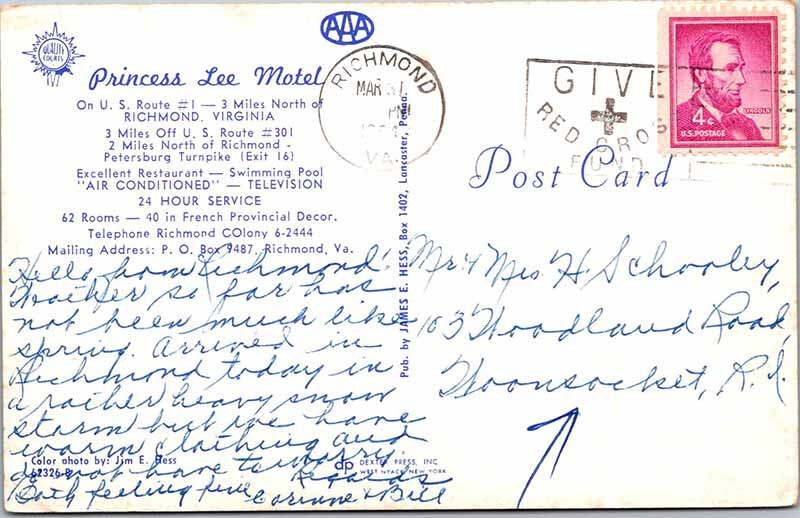 QUALITY
COURTS
AAA
Princess Lee Motel
On U. S. Route #1 — 3 Miles North of
RICHMOND, VIRGINIA
3 Miles Off U. S. Route #301
2 Miles North of Richmond -
Petersburg Turnpike (Exit 16)
Excellent Restaurant — Swimming Pool
"AIR CONDITIONED" — TELEVISION
24 HOUR SERVICE
62 Rooms — 40 in French Provincial Decor.
Telephone Richmond COlony 6-2444
Mailing Address: P. O. Box 9487, Richmond, Va.
Hello from Richmond!
Weather so far has
not been much like
spring. Arrived in
Richmond today in
a rather heavy snow
storm but we have
warm clothing and
do not have to worry.
Both feeling fine Regards
Corinne & Bill
Color photo by: Jim E. Hess
62326-B
Pub. by JAMES E. HESS, Box 1402, Lancaster, Penna.
dp DEXTER PRESS, INC.
WEST NYACK, NEW YORK
RICHMOND
MAR 31
PM
VA.
GIVE
RED CROSS
FUND
4c
LINCOLN
U.S. POSTAGE
Post Card
Mr & Mrs. H Schooley,
103 Woodland Road,
Woonsocket, R.I.